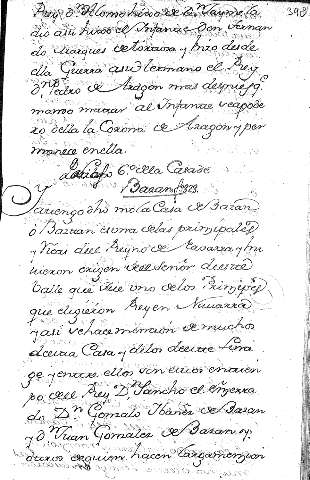 398
Rey Dn Alomo hixo de Dn Jayme la
dio a su hixo el Infante Don Fernan
do Marques de Tortosa y hizo desde
ella Guerra a su hermano el Rey
Dn Pedro de Aragon mas despues q.
mando matar al Infante se apode
ro della la Corona de Aragon y per
manece en ella.
Parrafo 6º de la Casa de
Bazan
Ya tengo dho mo la Casa de Bazan
o Baztan es una de las principales
y Ricas del Reyno de Navarra y tu
vieron origen del Señor de este
Valle que fue uno de los Principes
que eligieron Rey en Navarra
y asi se hace mincion de muchos
de esta Casa y de los de este Lina
ge y entre ellos son en el
po, de el Rey Dn Sancho el
do Dn Gonzalo Ibañez de Bazan
y Dn Juan Gonzalez de Bazan y
de los quien hacen larga mencion